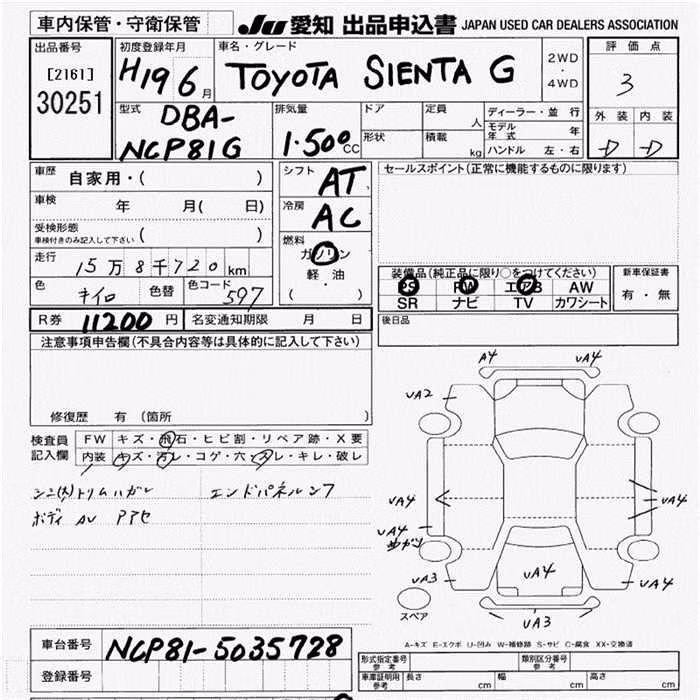 車内保管・守衛保管
JU 愛知 出品申込書 JAPAN USED CAR DEALERS ASSOCIATION
出品番号
[2161]
30251
初度登録年月
H19 6月
車名・グレード
TOYOTA SIENTA G
2WD
・
4WD
評価点
3
外装 内装
D D
型式
DBA-
NCP81G
排気量
1.500CC
ドア
形状
定員
人
積載
kg
ディーラー・並行
モデル年式 年
ハンドル 左・右
車歴
自家用・( )
車検
年 月( 日)
受検形態
車検付きのみ記入して下さい ( )
走行
15万8千720km
色
キイロ
色替
色コード
597
シフト
AT
冷房
AC
燃料
ガソリン
軽・油
( )
セールスポイント(正常に機能するものに限ります)
装備品(純正品に限り○をつけてください)
PS PW エアB AW
SR ナビ TV カワシート
新車保証書
有・無
後日品
R券 11200 円
名変通知期限 月 日
注意事項申告欄(不具合内容等は具体的に記入して下さい)
修復歴 有 (箇所
検査員
記入欄
FW キズ・飛石・ヒビ割・リペア跡・X要
内装 キズ・汚レ・コゲ・穴・スレ・キレ・破レ
シミ(大)トリムハガレ エンドパネルシワ
ボディ AU アアセ
A4
UA4
UA2
UA4
UA4
UA4
UA3
UA4
UA4
UA3
スペア
A-キズ E-エクボ U-凹み W-補修跡 S-サビ C-腐食 XX-交換済
車台番号
NCP81-5035728
登録番号
形式指定番号
参考
類別区分番号
参考
車庫証明用
参考
長さ cm
幅 cm
高さ cm